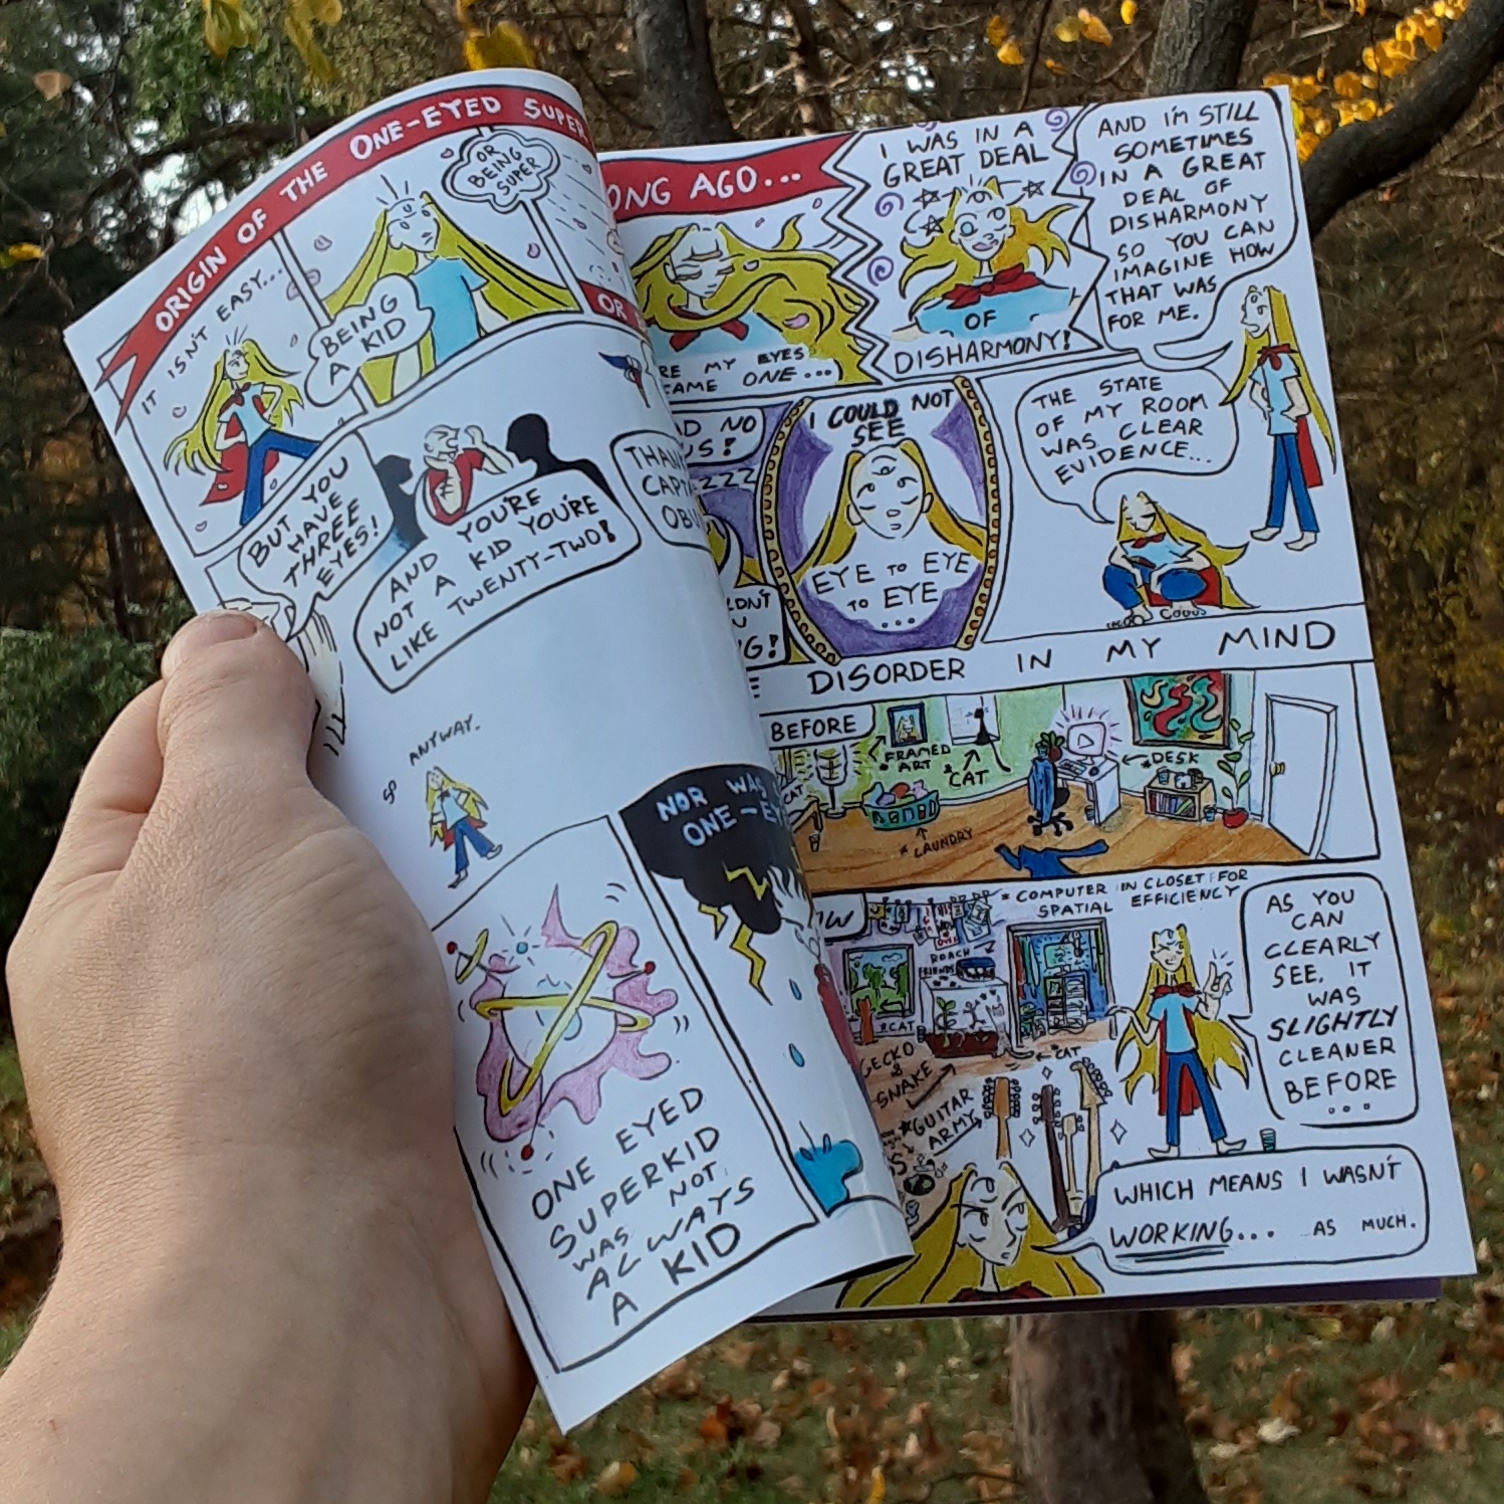 ORIGIN OF THE ONE-EYED SUPER
IT ISN'T EASY...
BEING
A KID
OR
BEING
SUPER
OR
BUT YOU
HAVE
THREE
EYES!
AND YOU'RE
NOT A KID YOU'RE
LIKE TWENTY-TWO!
SO ANYWAY.
ONE EYED
SUPERKID
WAS NOT
ALWAYS
A KID
NOR WAS
ONE-
ONG AGO...
RE MY EYES
CAME ONE...
I WAS IN A
GREAT DEAL
OF
DISHARMONY!
AND I'M STILL
SOMETIMES
IN A GREAT
DEAL OF
DISHARMONY
SO YOU CAN
IMAGINE HOW
THAT WAS
FOR ME.
NO
US!
ZZZ
I COULD NOT
SEE
EYE TO EYE
TO EYE
...
THE STATE
OF MY ROOM
WAS CLEAR
EVIDENCE...
DISORDER IN MY MIND
BEFORE
*FRAMED
ART
*CAT
*DESK
CAT
*LAUNDRY
*COMPUTER IN CLOSET FOR
SPATIAL EFFICIENCY
ROACH
FRIENDS
*CAT
GECKO
&
SNAKE
*CAT
*GUITAR
ARMY
AS YOU
CAN
CLEARLY
SEE, IT
WAS
SLIGHTLY
CLEANER
BEFORE
...
WHICH MEANS I WASN'T
WORKING... AS MUCH.